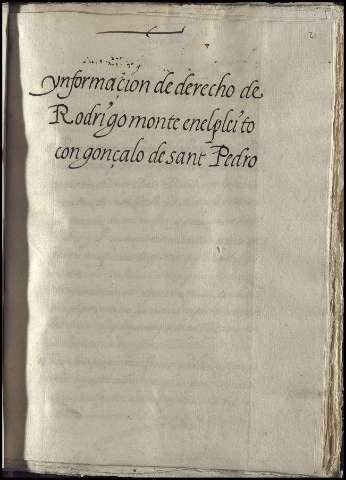 ynformaçion de derecho de
Rodrigo monte enel pleito
con gonçalo de sant Pedro